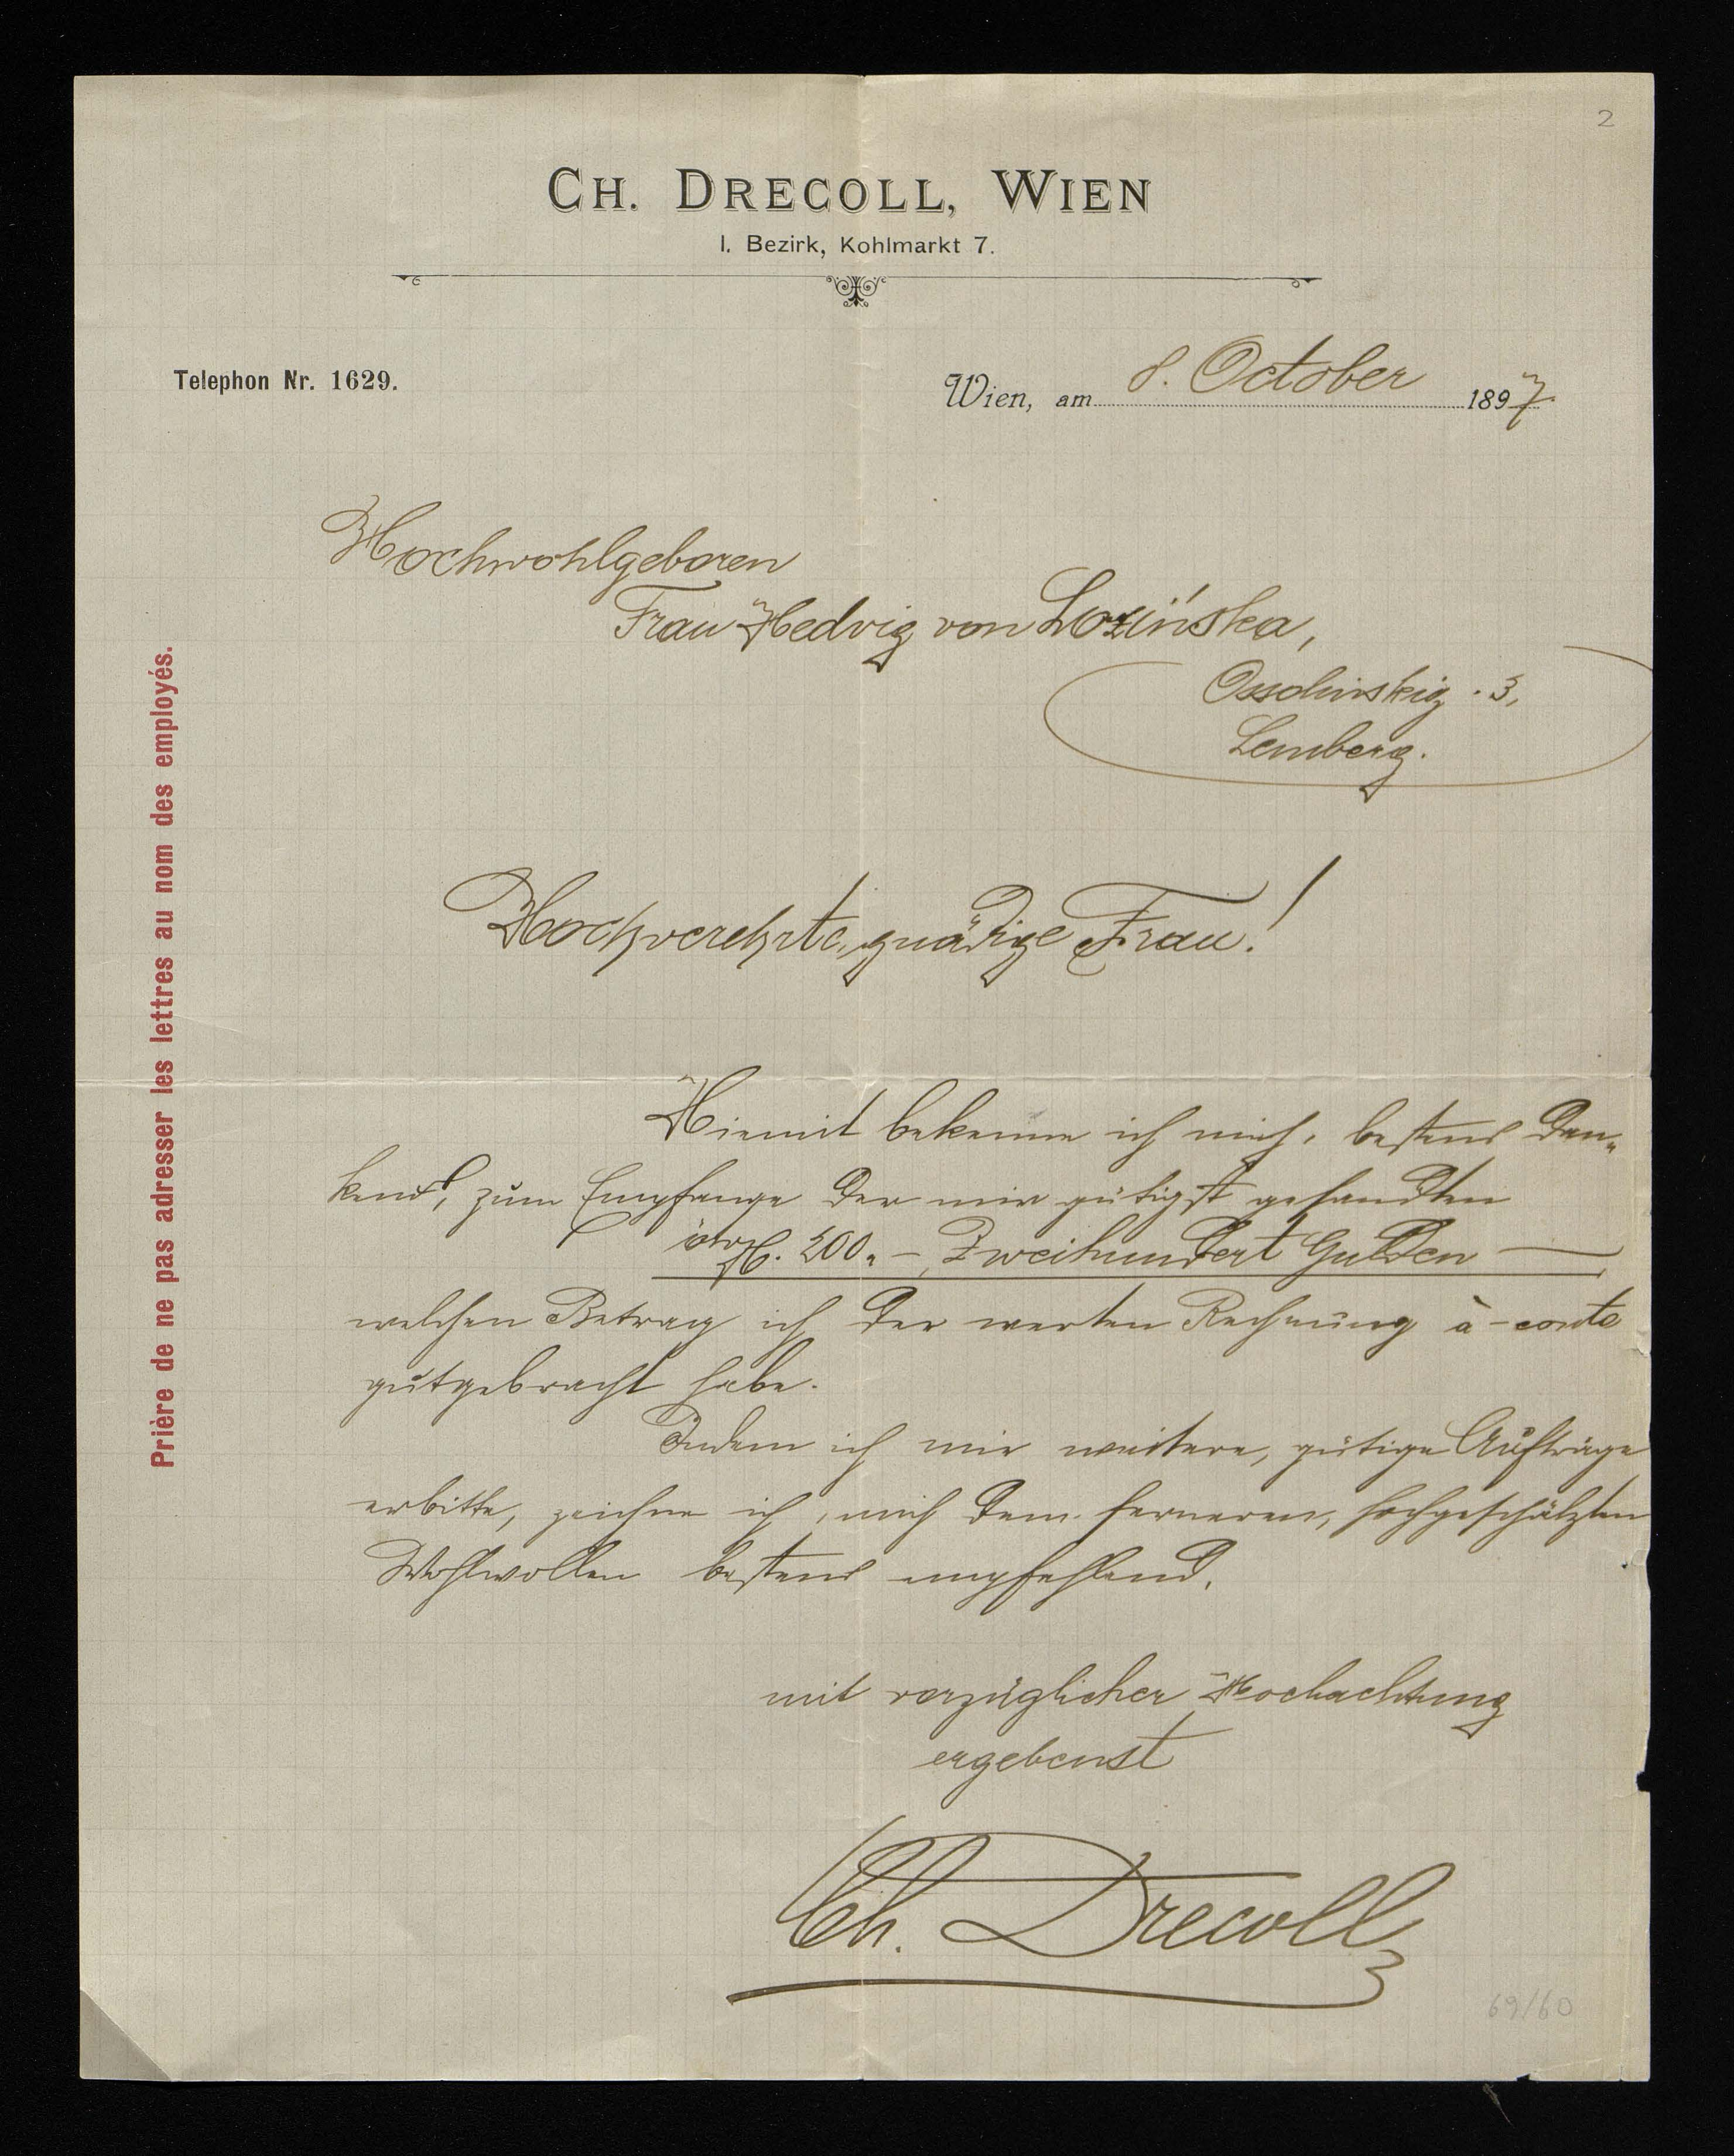 2
CH. DRECOLL, WIEN
I. Bezirk, Kohlmarkt 7.
Telephon Nr. 1629.
Wien, am 8. October 1897
Hochwohlgeboren
Frau Hedvig von Lozińska,
Ossolinskig. 3,
Lemberg.
Hochverehrte, gnädige Frau!
Hiemit bekenne ich mich, bestens dan-
kend, zum Empfange der mir gütigst gesandten
fl. 200.- Zweihundert Gulden —
welchen Betrag ich der werten Rechnung à-conto
gutgebracht habe.
Indem ich mir weitere, gütige Aufträge
erbitte, zeichne ich, mich dem ferneren, hochgeschätzten
Wohlwollen bestens empfehlend,
mit vorzüglicher Hochachtung
ergebenst
Ch. Drecoll
69/60
Prière de ne pas adresser les lettres au nom des employés.